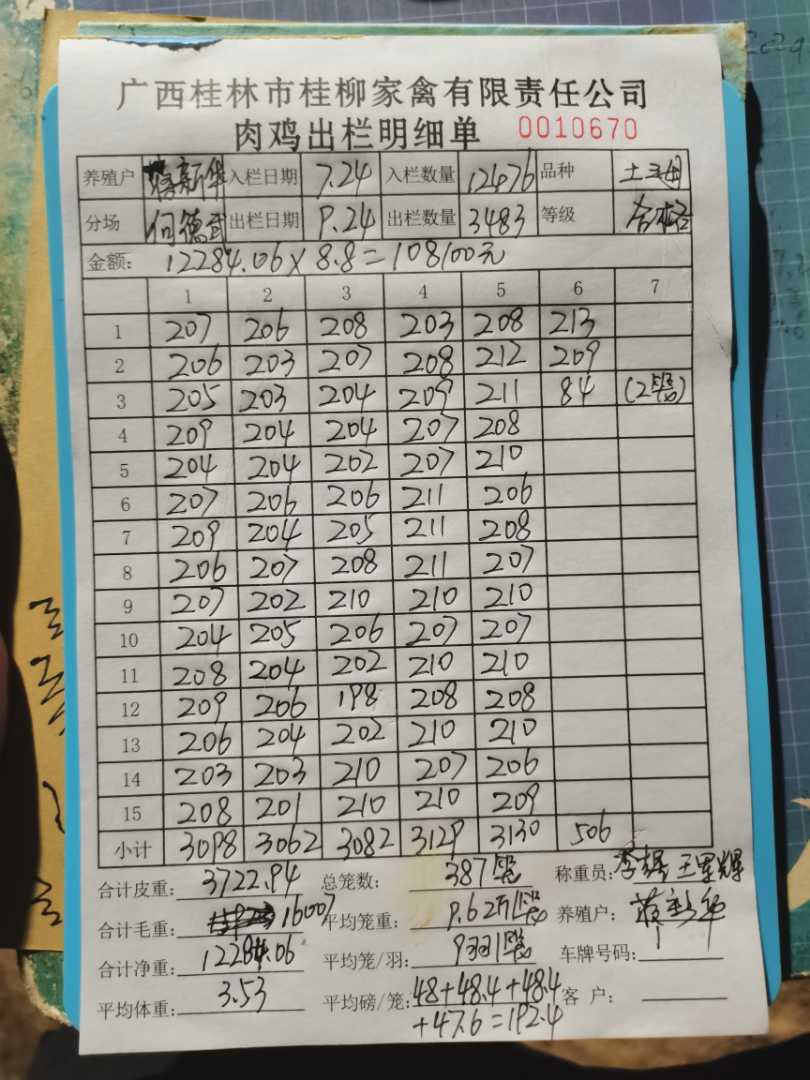 广西桂林市桂柳家禽有限责任公司
肉鸡出栏明细单 0010670
养殖户 蒋新华 入栏日期 7.24 入栏数量 12476 品种
分场 何德武 出栏日期 9.24 出栏数量 3483 等级 合格
金额: 12284.06×8.8=108100元
1 2 3 4 5 6 7
1 207 206 208 203 208 213
2 206 203 207 208 212 209
3 205 203 204 209 211 84 (2笼)
4 209 204 204 207 208
5 204 204 202 207 210
6 207 206 206 211 206
7 209 204 205 211 208
8 206 207 208 211 207
9 207 202 210 210 210
10 204 205 206 207 207
11 208 204 202 210 210
12 209 206 198 208 208
13 206 204 202 210 210
14 203 203 210 207 206
15 208 201 210 210 209
小计 3098 3062 3082 3129 3130 506
合计皮重: 3722.94 总笼数: 387笼 称重员:
合计毛重: 16007 平均笼重: 9.62斤/笼 养殖户: 蒋新华
合计净重: 12284.06 平均笼/羽: 9羽/笼 车牌号码:
平均体重: 3.53 平均磅/笼: 48+48.4+48.4 客 户:
+47.6=192.4